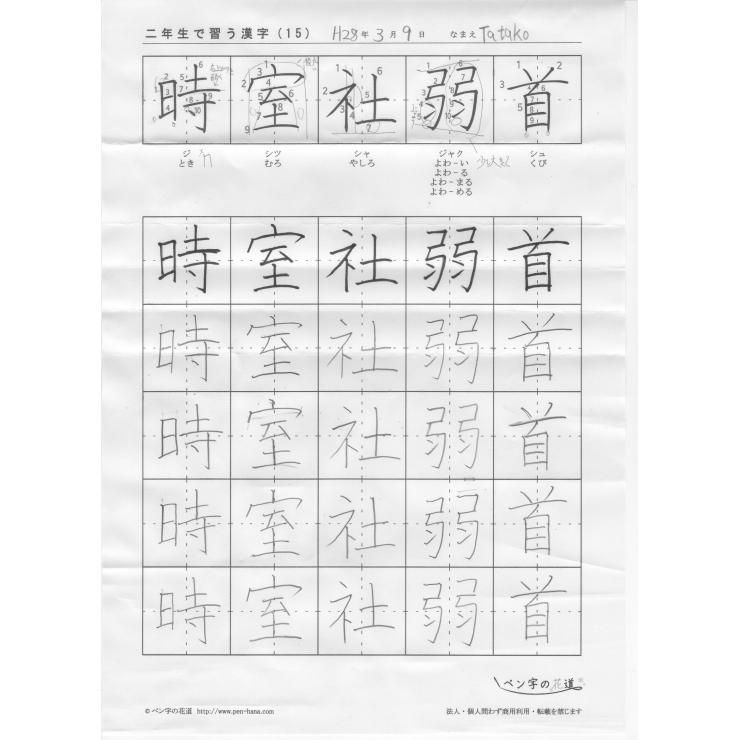 二年生で習う漢字(15) H28年3月9日 なまえ Tatako
時 室 社 弱 首
ジ シツ シャ ジャク シュ
とき むろ やしろ よわ-い くび
よわ-る
よわ-まる
よわ-める
時 室 社 弱 首
時 室 社 弱 首
時 室 社 弱 首
時 室 社 弱 首
時 室 社 弱 首
ペン字の花道
©ペン字の花道 http://www.pen-hana.com 法人・個人問わず商用利用・転載を禁じます